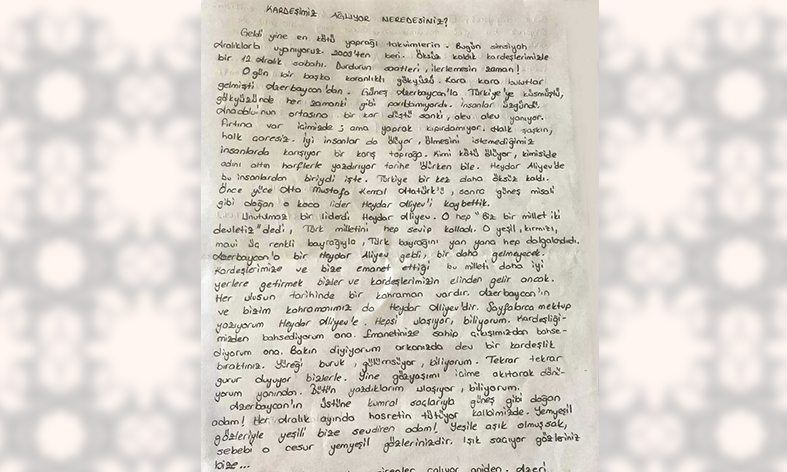 KARDEŞİMİZ AĞLIYOR NEREDESİNİZ?
Geldi yine en kötü yaprağı takvimlerin. Bugün simsiyah
Aralıklara uyanıyoruz. 2003'ten beri. Öksüz kaldık kardeşlerimizle
bir 12 Aralık sabahı. Durdurun saatleri, ilerlemesin zaman!
O gün bir başka karanlıktı gökyüzü. Kara kara bulutlar
gelmişti Azerbaycan'dan. Güneş Azerbaycan'la Türkiye'ye küsmüştü,
gökyüzünde her zamanki gibi parıldamıyordu. İnsanlar üzgündü.
Anadolu'nun ortasına bir kor düştü sanki, alev alev yanıyor.
Fırtına var içimizde; ama yaprak kıpırdamıyor. Halk şaşkın,
halk çaresiz. İyi insanlar da ölüyor, ölmesini istemediğimiz
insanlarda karışıyor bir karış toprağa. Kimi kötü ölüyor, kimiside
adını altın harflerle yazdırıyor tarihe ölürken bile. Haydar Aliyev'de
bu insanlardan biriydi işte. Türkiye bir kez daha öksüz kaldı.
Önce yüce Ata Mustafa Kemal Atatürk'ü, sonra güneş misali
gibi doğan o koca lider Haydar Aliyev'i kaybettik.
Unutulmaz bir liderdi Haydar Aliyev. O hep "Biz bir millet iki
devletiz" dedi, Türk milletini hep sevip kolladı. O yeşil, kırmızı,
mavi üç renkli bayrağıyla, Türk bayrağını yan yana hep dalgalandırdı.
Azerbaycan'a bir Haydar Aliyev geldi, bir daha gelmeyecek.
Kardeşlerimize ve bize emanet ettiği bu milleti daha iyi
yerlere getirmek bizler ve kardeşlerimizin elinden gelir ancak.
Her ulusun tarihinde bir kahraman vardır. Azerbaycan'ın
ve bizim kahramanımız da Haydar Aliyev'dir. Sayfalarca mektup
yazıyorum Haydar Aliyev'e. Hepsi ulaşıyor, biliyorum. Kardeşliği-
mizden bahsediyorum ona. Emanetinize sahip çıkışımızdan bahse-
diyorum ona. Bakın diyiyorum arkanızda dev bir kardeşlik
bıraktınız. Yüreği buruk, gülümsüyor, biliyorum. Tekrar tekrar
gurur duyuyor bizlerle. Yine gözyaşımı içime akıtarak dönü-
yorum yanından. Bütün yazdıklarım ulaşıyor, biliyorum.
Azerbaycan'ın üstüne kumral saçlarıyla güneş gibi doğan
adam! Her Aralık ayında hasretin tütüyor kalbimizde. Yemyeşil
gözleriyle yeşili bize sevdiren adam! Yeşile aşık olmuşsak,
sebebi o cesur yemyeşil gözlerinizdir. Işık saçıyor gözleriniz
bize...
çalıyor aniden. Azeri